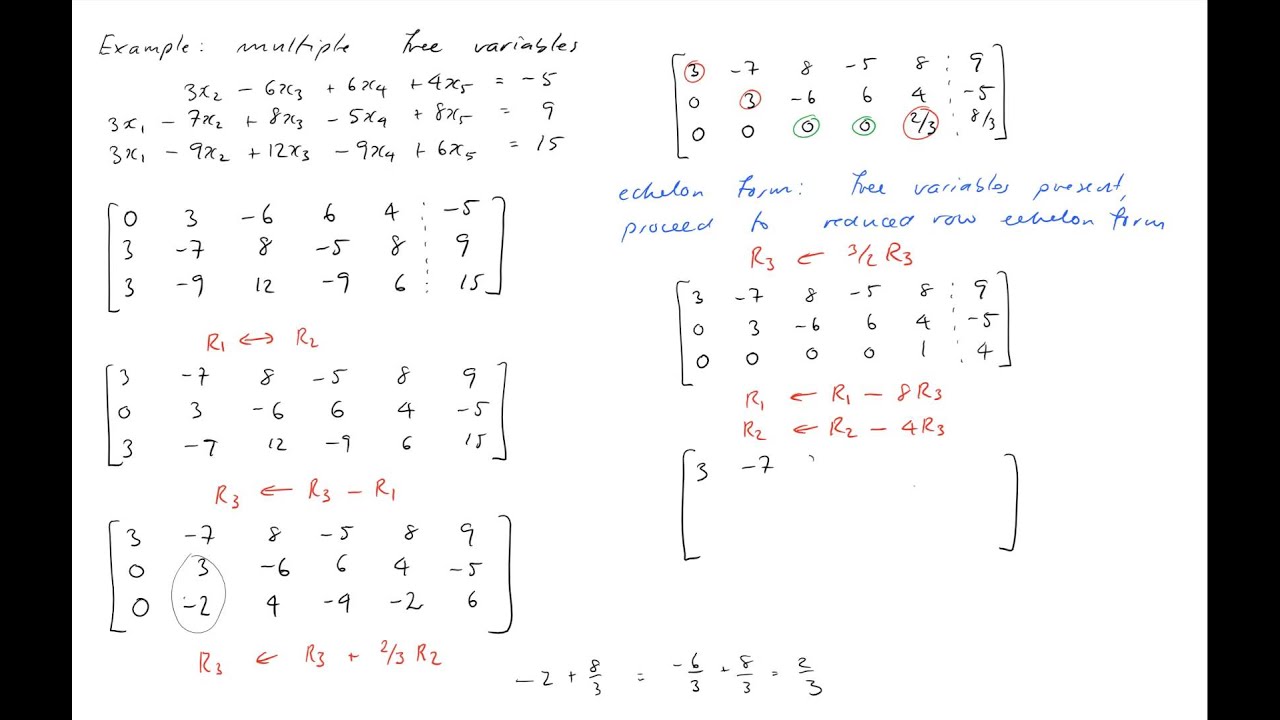 Example: multiple free variables
3x₂ - 6x₃ + 6x₄ + 4x₅ = -5
3x₁ - 7x₂ + 8x₃ - 5x₄ + 8x₅ = 9
3x₁ - 9x₂ + 12x₃ - 9x₄ + 6x₅ = 15
0 3 -6 6 4 -5
3 -7 8 -5 8 9
3 -9 12 -9 6 15
R₁ ↔ R₂
3 -7 8 -5 8 9
0 3 -6 6 4 -5
3 -7 12 -9 6 15
R₃ ← R₃ - R₁
3 -7 8 -5 8 9
0 3 -6 6 4 -5
0 -2 4 -4 -2 6
R₃ ← R₃ + 2/3 R₂
3 -7 8 -5 8 9
0 3 -6 6 4 -5
0 0 0 0 2/3 8/3
echelon form: free variables present,
proceed to reduced row echelon form
R₃ ← 3/2 R₃
3 -7 8 -5 8 9
0 3 -6 6 4 -5
0 0 0 0 1 4
R₁ ← R₁ - 8R₃
R₂ ← R₂ - 4R₃
3 -7
-2 + 8/3 = -6/3 + 8/3 = 2/3